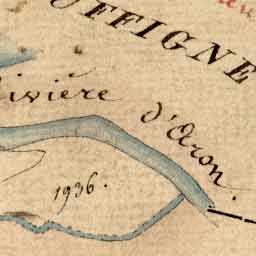 UFFIGNE
ivière d'Aron.
1936.